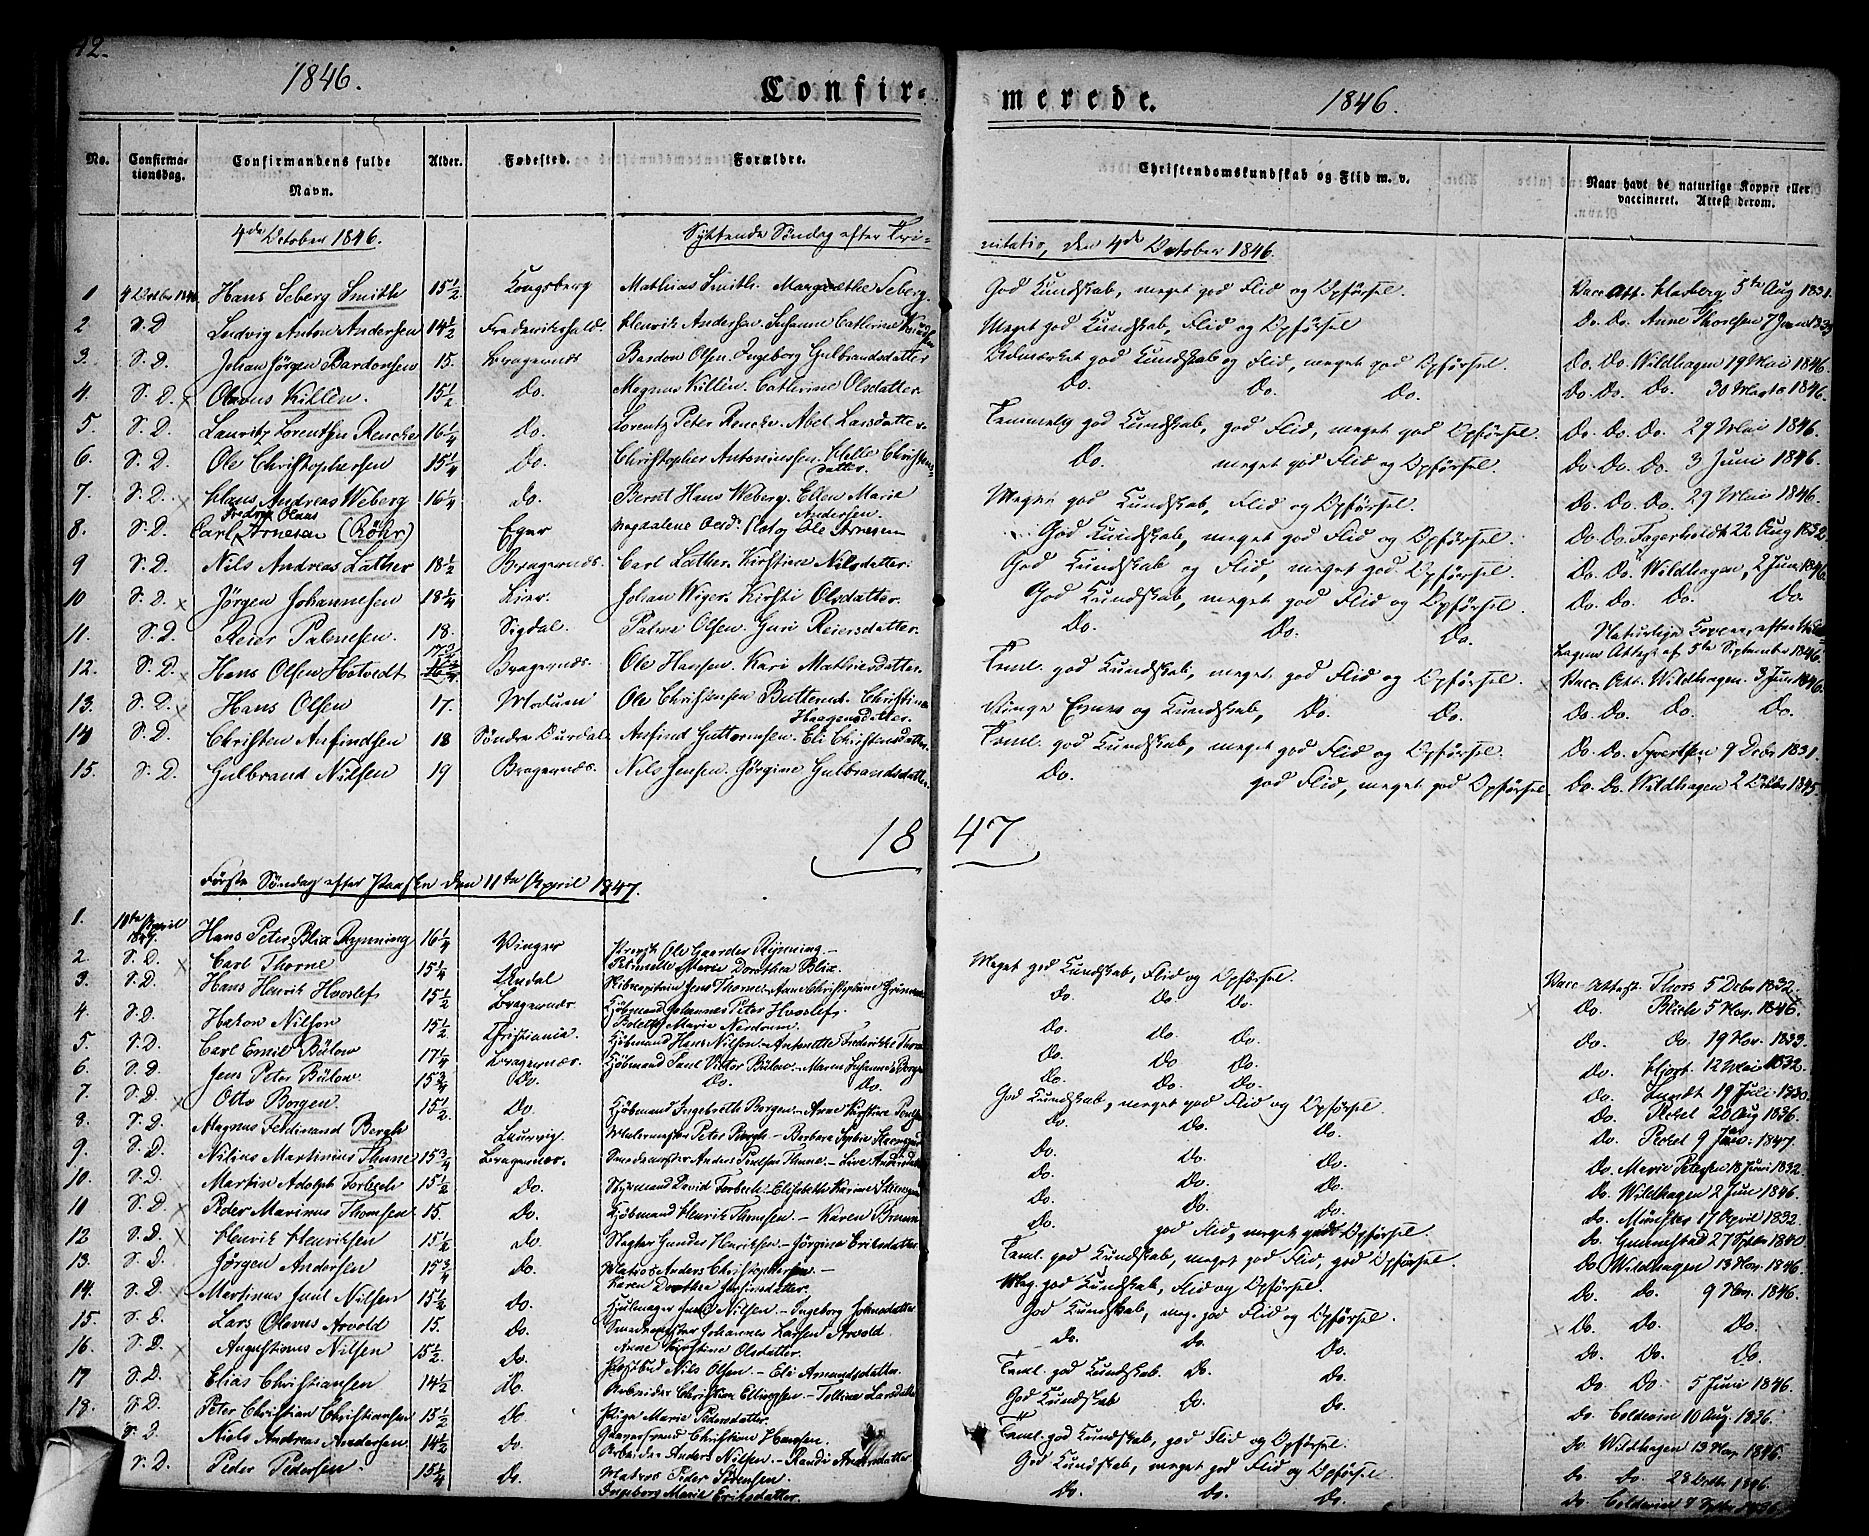 42.
1846. Confir-
merede. 1846.
No. Confirma-tionsdag. Confirmandens fulde Navn. Alder. Fødested. Forældre.
Christendomskundskab og Flid m. v. Naar havt de naturlige Kopper eller vaccineret. Attest derom.
4de October 1846. Syttende Søndag efter Tri-
nitatis, den 4de October 1846.
1 4 Octbr 1846 Hans Seberg Smith 15 1/2 Kongsberg Mathias Smith. Margrethe Seberg. God Kundskab, meget god Flid og Opførsel. Vacc. Att. 5te Aug 1831.
2. S. D. Ludvig Anton Andersen 14 1/2 Frederikshald Henrik Andersen. Susanne Cathrine Meget god Kundskab, Flid og Opførsel Do. Do. Anne Thoresen 7 Juni
3. S. D. Johan Jørgen Bardonsen 15. Bragernes Bardon Olsen. Ingeborg Gulbrandsdatter Udmærket god Kundskab og Flid, meget god Opførsel. Do. Do. Wildhagen 19 Mai 1846.
4. S. D. Olavus Killén. 15 1/2 Do. Magnus Killén. Cathrine Olsdatter. Do. Do. Do. Do. Do. Do. 30 Marts 1846.
5. S. D. Lauritz Lorentzen Rencke 16 1/4 Do. Lorentz Peter Rencke. Abel Larsdatter Temmelig god Kundskab, god Flid, meget god Opførsel. Do. Do. Do. 29 Mai 1846.
6. S. D. Ole Christophersen 15 1/4 Do. Christopher Antonissen. Helle Christensdatter. Do. meget god Flid og Opførsel. Do. Do. Do. 3 Juni 1846.
7. S. D. Hans Andreas Weberg 16 1/4 Do. Bernt Hans Weberg. Ellen Marie Andersen. Meget god Kundskab, Flid og Opførsel. Do. Do. Do. 29 Mai 1846.
8. S. D. Carl Fredrik Olaus Arnesen (Röhr) Eger Magdalene Olsd. Ole Arnesen God Kundskab, meget god Flid og Opførsel. Do. Do. Fagerholdt 22 Aug 1832
9 S. D. Nils Andreas Lather 18 1/2 Bragernes. Carl Lather. Kirstine Nilsdatter. God Kundskab og Flid, meget god Opførsel. Do. Do. Wildhagen, 2 Juni 1846.
10 S. D. Jørgen Johannesen 18 1/4 Lier. Johan Wiger. Kirsti Olsdatter. God Kundskab, meget god Flid og Opførsel. Do. Do. Do. Do.
11. S. D. Reier Palmesen. 18. Sigdal. Palme Olsen. Guri Reiersdatter. Do. Do. Do. Naturlige Kopper, efter Attest af 5te September 1846.
12. S. D. Hans Olsen Hotvedt 17 3/4 Bragernes. Ole Hansen. Kari Mathisdatter. Teml. god Kundskab, meget god Flid og Opførsel. Vacc. Att. Wildhagen. 3 Juni 1846.
13. S. D. Hans Olsen 17. Modum Ole Christensen Butterud. Christine Haagensdatter. Ringe Evner og Kundskab, Do. Do. Do. Do. Do. Do.
14 S. D. Christen Anfindsen 18 Søndre Aurdal Anfind Guttormsen. Eli Christensdatter. Teml. god Kundskab, meget god Flid og Opførsel. Do. Do. Syvertsen 9 Decbr 1831.
15. S. D. Gulbrand Nilsen 19 Bragernes. Nils Jensen. Jørgine Gulbrandsdatter. Do. god Flid, meget god Opførsel. Do. Do. Wildhagen 2 1845
1847
Første Søndag efter Paaske den 11te April 1847.
1. 11te April 1847. Hans Peter Blix Rynning 16 1/4 Vinger Ole Gaarder Rynning - Marie Dorothea Blix. Meget god Kundskab, Flid og Opførsel. Vacc. Attest. Thors 5 Decbr 1832.
2. S. D. Carl Thorne 15 1/4 Jens Thorne. Do. Do. Do. Do. 5 Nov. 1846.
3. S. D. Hans Henrik Hvoslef 15 1/2 Bragernes. Kjøbmand Johannes Peter Hvoslef. Bolette Marie Nordrum. Do. Do. Do. Do. Do. 19 Nov. 1833.
4. S. D. Hakon Nilsen 15 1/2 Christiania. Kjøbmand Hans Nilsen. - Antonette Frederikke Do. Do. Do. Do. Hjort 12 Mai 1832.
5. S. D. Carl Emil Bülow 17 1/4 Bragernes. Kjøbmand Paul Victor Bülow. - Maren Susanne Borgen Do. Do. Do. Do. Lundt 19 Juli 1830.
6. S. D. Jens Peter Bülow. 15 3/4 Do. Do. Do. God Kundskab, meget god Flid og Opførsel. Do. 20 Aug 1836.
7. S. D. Otto Borgen. 15 1/2 Do. Kjøbmand Ingebreth Borgen. - Anne Kirstine Do. Do. Do. Do. 9 1847.
8. S. D. Magnus Ferdinand Bergh Laurvig. Malermester Peter Bergh - Barbara Sophie Do. Do. Do. Do. Marie Petersen 18 Juni 1832.
9. S. D. Nilius Martinius Thune 15 3/4 Bragernes. Smedemester Anders Poulsen Thune. - Do. Do. Do. Do. Wildhagen 2 Juni 1846.
10. S. D. Martin Adolph Torbech 15 1/2 Do. Styrmand David Torbech. - Elisabeth Karine Do. Do. Do. Do. Münster 17 April 1832.
11 S. D. Peder Marinus Thomsen 15. Do. Kjøbmand Henrik Thomsen. - Karen Do. god Flid, meget god Opførsel. Do. Gunnestad 27 1840
12 S. D. Henrik Henriksen 15 1/2 Do. Slagter Gunder Henriksen. - Jørgine Eriksdatter Teml. god Kundskab, meget god Flid, god Opførsel. Do Wildhagen 13 Nov. 1846.
13. S. D. Jørgen Andersen 15 3/4 Do. Matros Anders Christophersen. - Karen Dorthea Meg. god Kundskab, Flid og Opførsel. Do. Do. 9 Nov. 1846.
14. S. D. Martinus Juul Nilsen 15 1/2 Do. Hjulmager Nilsen. - Ingeborg Johnsdatter God Kundskab, meg. god Flid og Opførsel. Do. Do. Do.
15. S. D. Lars Olavus Arvold 15. Do. Smedemester Johannes Larsen Arvold. Anne Kirstine Olsdatter. Do. Do. Do. Do. Do. Do.
16. S. D. Augustinus Nilsen 15 1/2. Do. Postbud Nils Olsen. - Eli Amundsdatter. Teml. god Kundskab. Do. Do. Do. Do. 5 Juni 1846.
17 S. D. Elias Christiansen 14 1/2 Do. Arbeider Christian Ellingsen. - Tolline Larsdatter God Kundskab Do. Do. Do. Coldevin 10 Aug. 1836.
18. S. D. Peter Christian Christiansen 15 1/2 Do. Pige Marie Pedersdatter. Christian Hansen. Teml. god Kundskab, god Flid og Opførsel. Do. Wildhagen 13 Nov. 1846.
S. D. Niels Andreas Andersen 14 1/2 Do. Arbeider Anders Nilsen. - Randi Andersdatter God Kundskab, meget god Flid og Opførsel. Do Do. 28 1846.
S. D. Peder Pedersen. 15 1/4 Do. Matros Peder Sörensen. Ingeborg Marie Eriksdatter. Do. Do. Do. Do. Coldevin 7 1836.